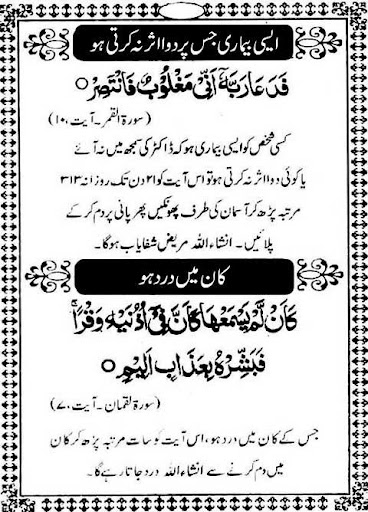 ایسی بیماری جس پر دوا اثر نہ کرتی ہو
فَدَعَا رَبَّهٗۤ اَنِّیْ مَغْلُوْبٌ فَانْتَصِرْ ○
(سورۃ القمر۔آیت،۱۰)
کسی شخص کو ایسی بیماری ہو کہ ڈاکٹر کی سمجھ میں نہ آئے
یا کوئی دوا اثر نہ کرتی ہو تو اس آیت کو ۲۱ دن تک روزانہ ۳۱۳
مرتبہ پڑھ کر آسمان کی طرف پھونکیں پھر پانی پر دم کر کے
پلائیں۔ انشاء اللہ مریض شفایاب ہوگا۔
کان میں درد ہو
كَاَنْ لَّمْ یَسْمَعْهَا كَاَنَّ فِیْۤ اُذُنَیْهِ وَقْرًاۚ
فَبَشِّرْهُ بِعَذَابٍ اَلِیْمٍ ○
(سورۃ لقمان۔آیت،۷)
جس کے کان میں درد ہو، اس آیت کو سات مرتبہ پڑھ کر کان
میں دم کرنے سے انشاء اللہ درد جاتا رہے گا۔